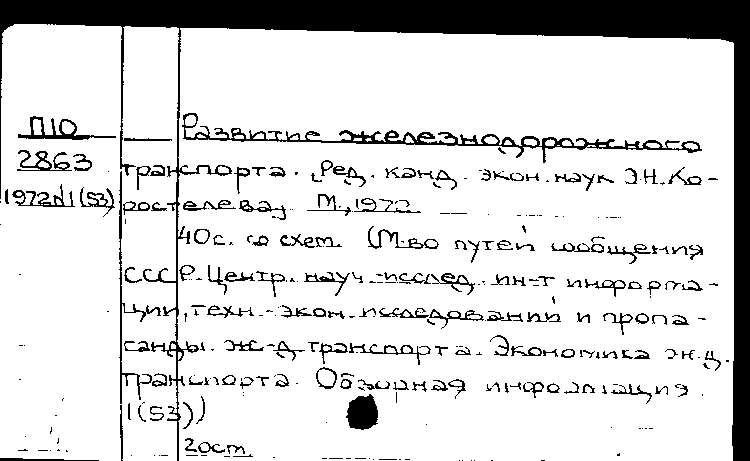 П10
2863
1972 N1(53)
Развитие железнодорожного
транспорта. [Ред. канд. экон. наук Э.Н. Ко-
ростелева]. М., 1972.
40с. со схем. (М-во путей сообщения
СССР. Центр. науч.-исслед. ин-т информа-
ции, техн.-экон. исследований и пропа-
ганды ж.-д. транспорта. Экономика ж.-д.
транспорта. Обзорная информация.
1(53))
20ст.